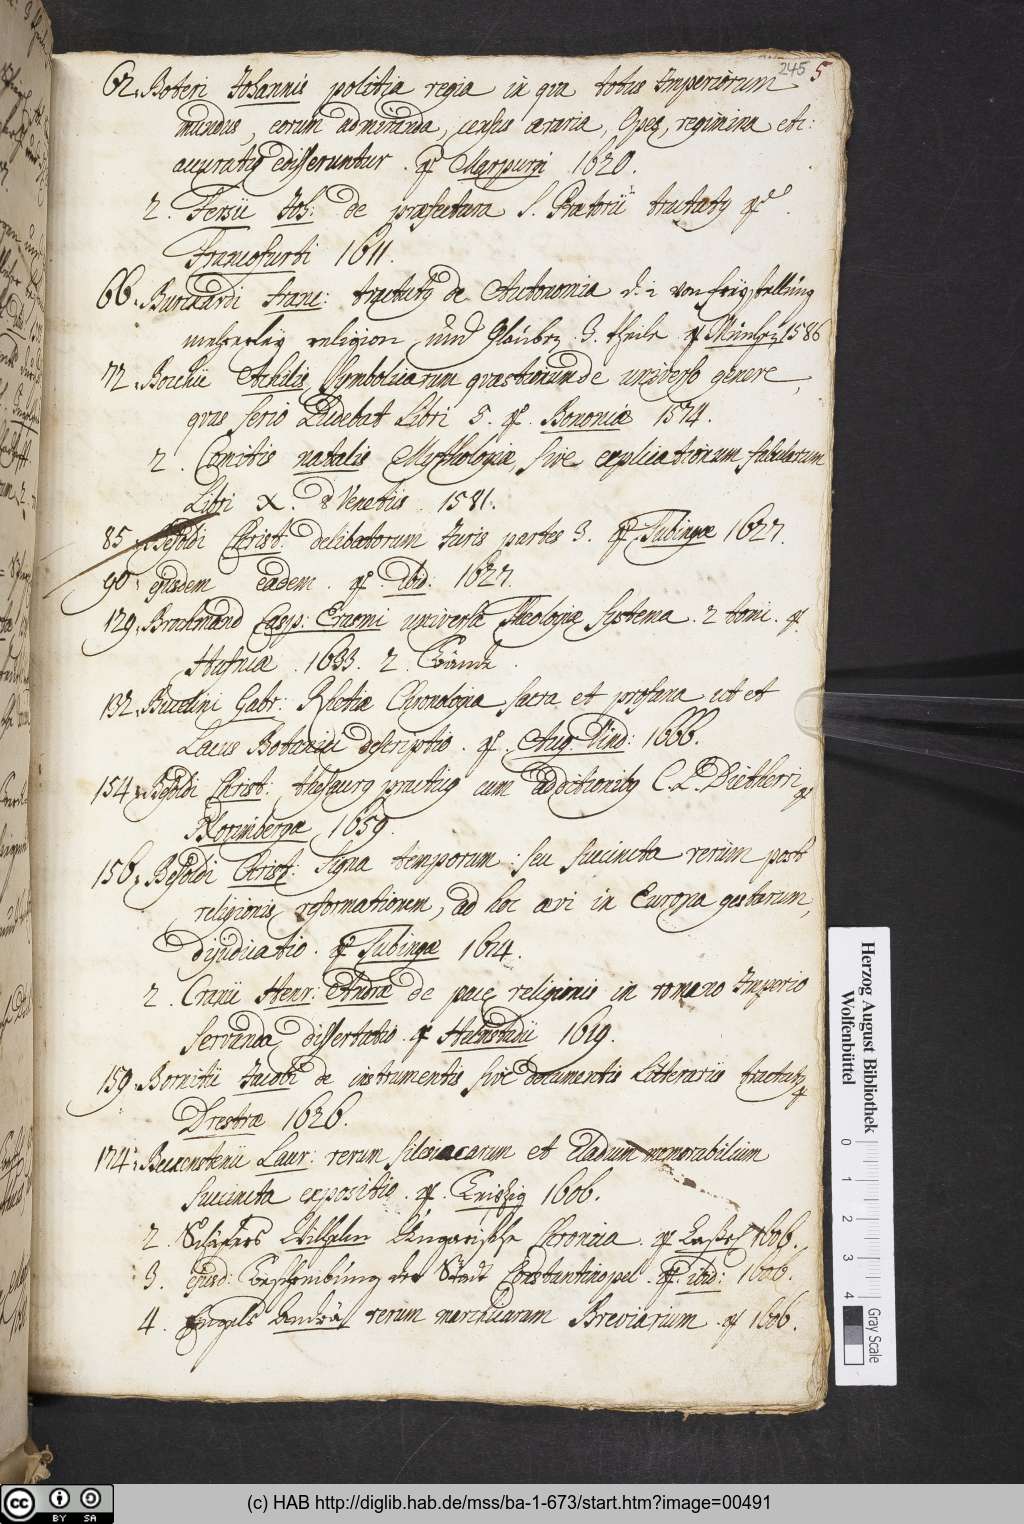 245 5
62. Boteri Johannis politia regia in qva totus Imperiorum
mundus, eorum admiranda, census æraria, Opes, regimina etc:
accuratiq edisseruntur. qf Marpurgi 1620.
2. Fersii Joh: de præfectura S. Prætorii tractatq qf.
Francofurti 1611.
66. Burcardi Franc: tractatq de Autonomia d. i. von freystellung
mehrerley religion und Glauben 3. theile qf München 1586
72. Bocchii Achilis Symbolicarum quæstionum de universo genere,
quas serio Ludebat Libri 5. qf. Bononiæ 1574.
2. Comitis natalis Mythologiæ, sive explicationum fabularum
Libri X. Venetiis 1581.
85. Besoldi Christ: delibatorum Juris partes 3. qf. Tubingæ 1627.
90. ejusdem eadem. qf. Ibid: 1627.
129. Brochmand Casp: Erasmi universæ Theologiæ Systema. 2 tomi. qf.
Hafniæ. 1633. 2. Bände.
132. Bucelini Gabr: Rhetiæ Chronologia sacra et profana ut et
Lacus Botamici descriptio. qf. Aug. Vind: 1666.
154. Besoldi Christ: thesaurq practicq cum additionibq C. L. Dietherri qf
Norimbergæ 1659.
156. Besoldi Christ: signa temporum: seu succincta rerum post
religionis reformationem, ad hoc ævi in Europa gestarum,
dijudicatio. qf Tubingæ 1614.
2. Cranii Henr: Andræ de pace religionis in romano Imperio
servanda, dissertatio qf Helmstadii 1619.
159. Bornitii Jacobi de instrumentis sive documentis Litterariis tractatq qf
Drestæ 1626.
174. Beckensteinii Laur: rerum silesiacarum et cladum memorabilium
succincta expositio. qf. 1606.
2. Schäfers Wilhelm Ungarische Chronica. qf Cassel 1606.
3. ejusd: Beschreibung der Stadt Constantinopel. qf. ibid: 1606.
4. Engels Andreæ rerum marchicarum Breviarium. qf 1606.
Herzog August Bibliothek
Wolfenbüttel
0 1 2 3 4
Gray Scale
(c) HAB http://diglib.hab.de/mss/ba-1-673/start.htm?image=00491
cc BY SA